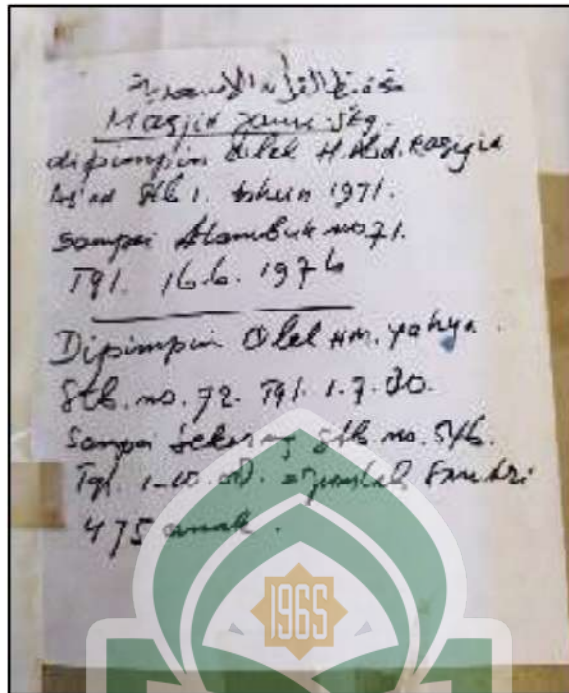 Masjid Jami Skg.
dipimpin Oleh H. Abd. Rasyid
As'ad Stb 1. tahun 1971.
Sampai Stambuk no 71.
Tgl. 16.6. 1976
Dipimpin Oleh HM. Yahya.
Stb. no. 72. Tgl. 1.7.80.
Sampai Sekarang Stb no. 546.
Tgl. 1-10. = Jumlah Santri
475 anak.
1965